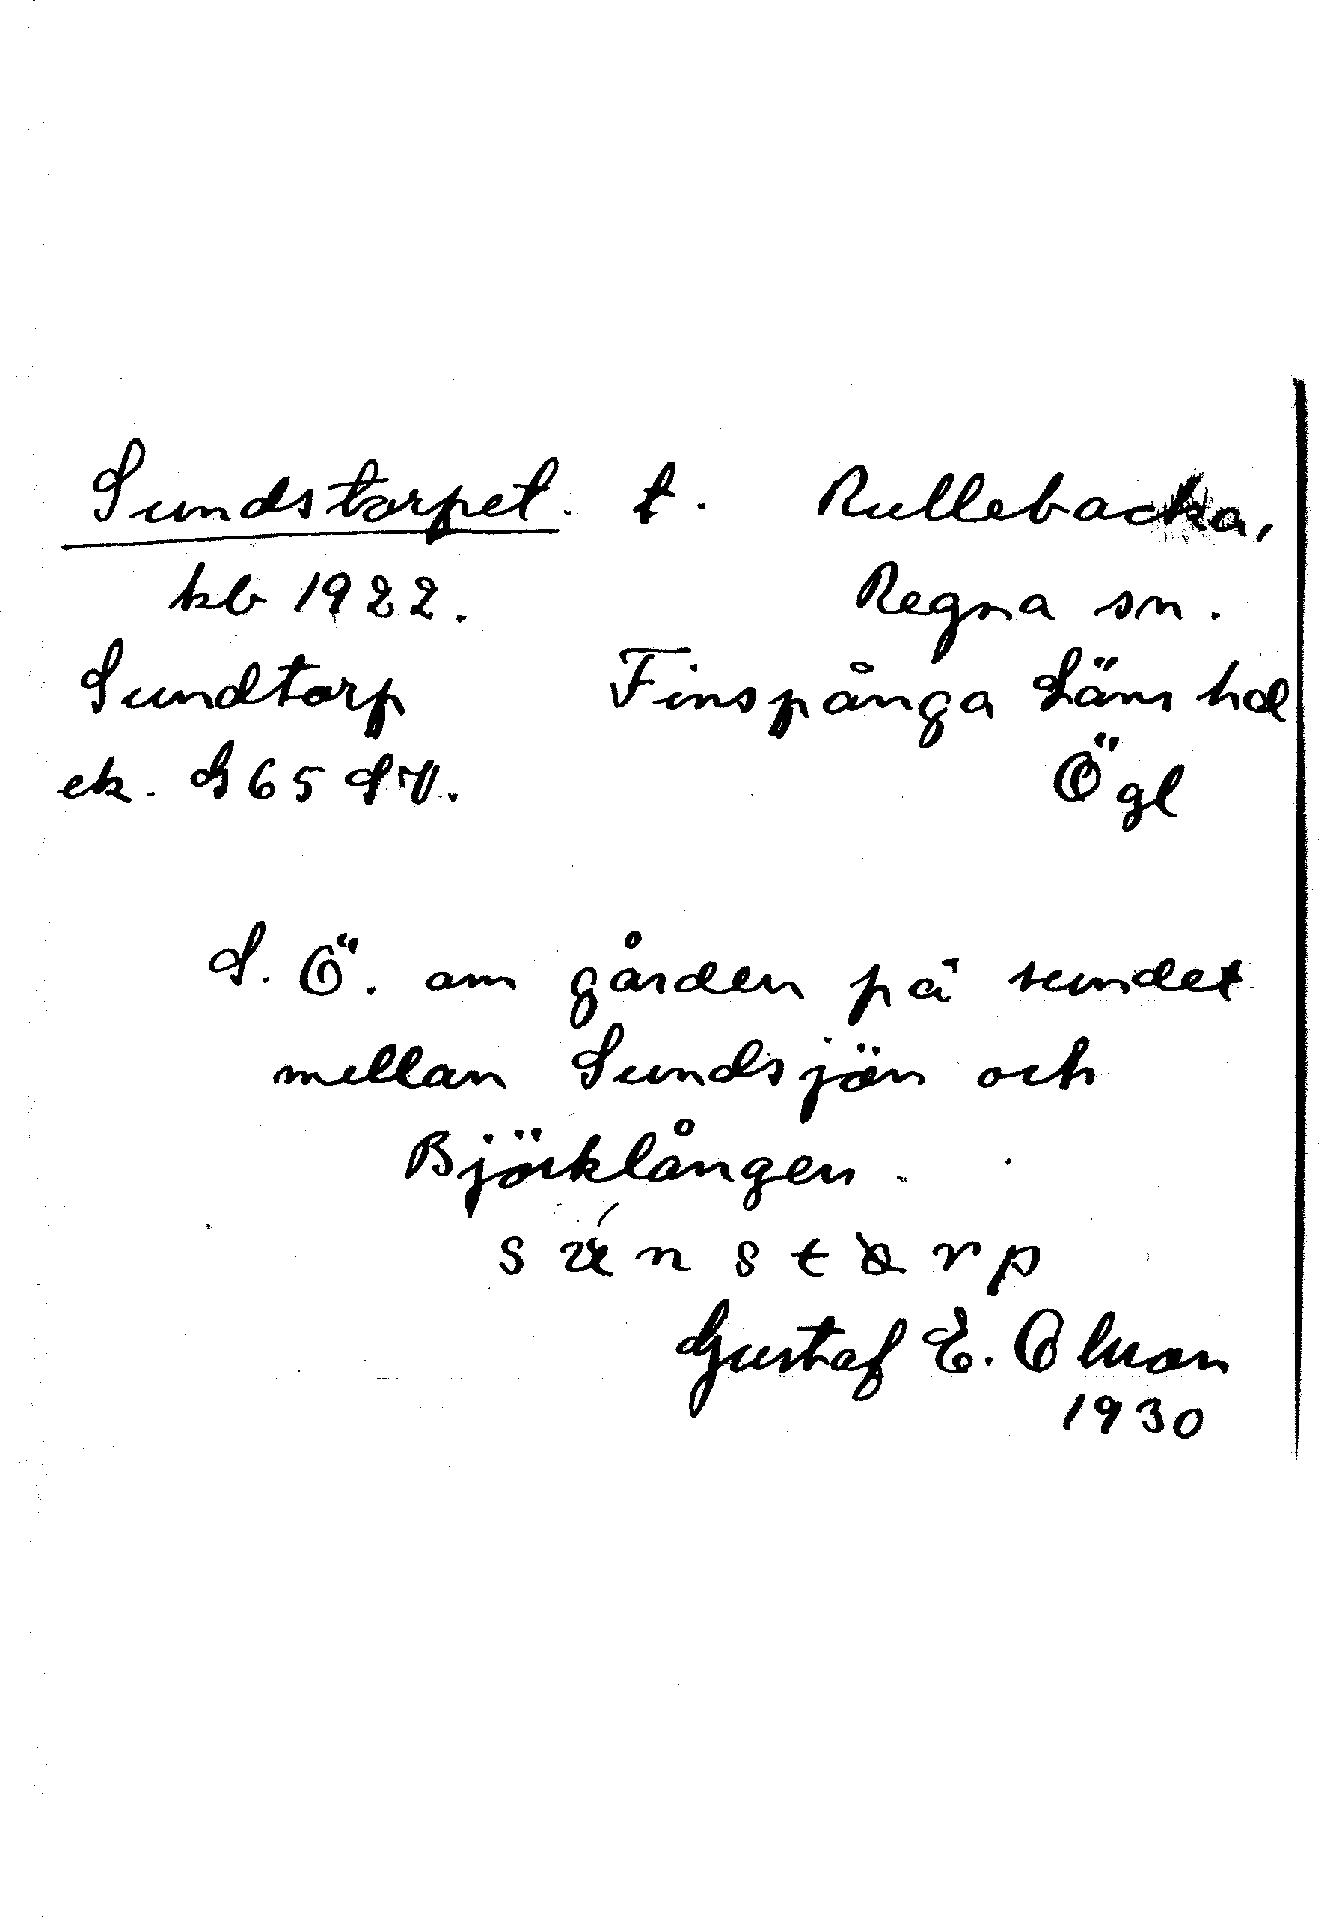 Sundstorpet. t. Rullebacka,
kb 1922. Regna sn.
Sundtorp Finspånga Läns hd
ek. G65 SV. Ögl
S. Ö. om gården på sundet
mellan Sundsjön och
Björklången.
Gustaf E. Olsson
1930